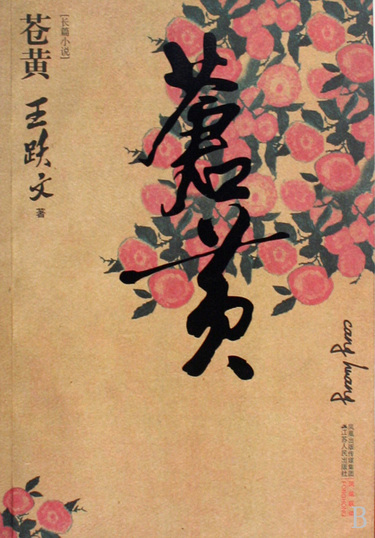 苍黄
[长篇小说]
王跃文
著
蒼黄
cang huang
凤凰出版传媒集团
江苏人民出版社
B